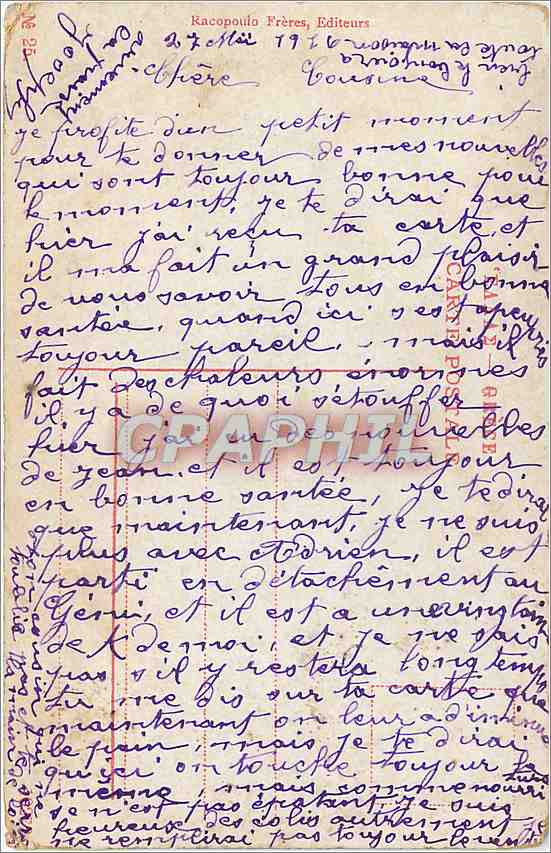 Racopoulo Frères, Editeurs
No 25
27 Mai 1916
Chère Cousine
je profite d'un petit moment
pour te donner de mes nouvelles
qui sont toujour bonne pour
le moment, je te dirai que
hièr j'ai reçu ta carte, et
il ma fait un grand plaisir
de vous savoir tous en bonne
santée, quand ici s'est apeuprès
toujour pareil, mais il
fait des chaleurs énormes
il y a de quoi s'étouffer,
hier j'ai eu des nouvelles
de Jean, et il est toujour
en bonne santée, je te dirai
que maintenant, je ne suis
plus avec Adrien, il est
parti en détachêment au
Génie, et il est a une vingtaine
de K de moi, et je ne sais
pas s'il y restera longtemps
tu me dis sur ta carte que
maintenant on leur a diminué
le pain, mais je te dirai
qu'ici on touche toujour la
meme, mais comme nourri
ture
se n'est pas épatant, je suis
heureuse des colis autrement
ne remplirai pas toujour le ventre
ton cousin qui ne
t'oublie pas et te serre
la main de loin
Joseph
bien le bonjour a
toute la maison
CARTE POSTALE
CPAPHIL